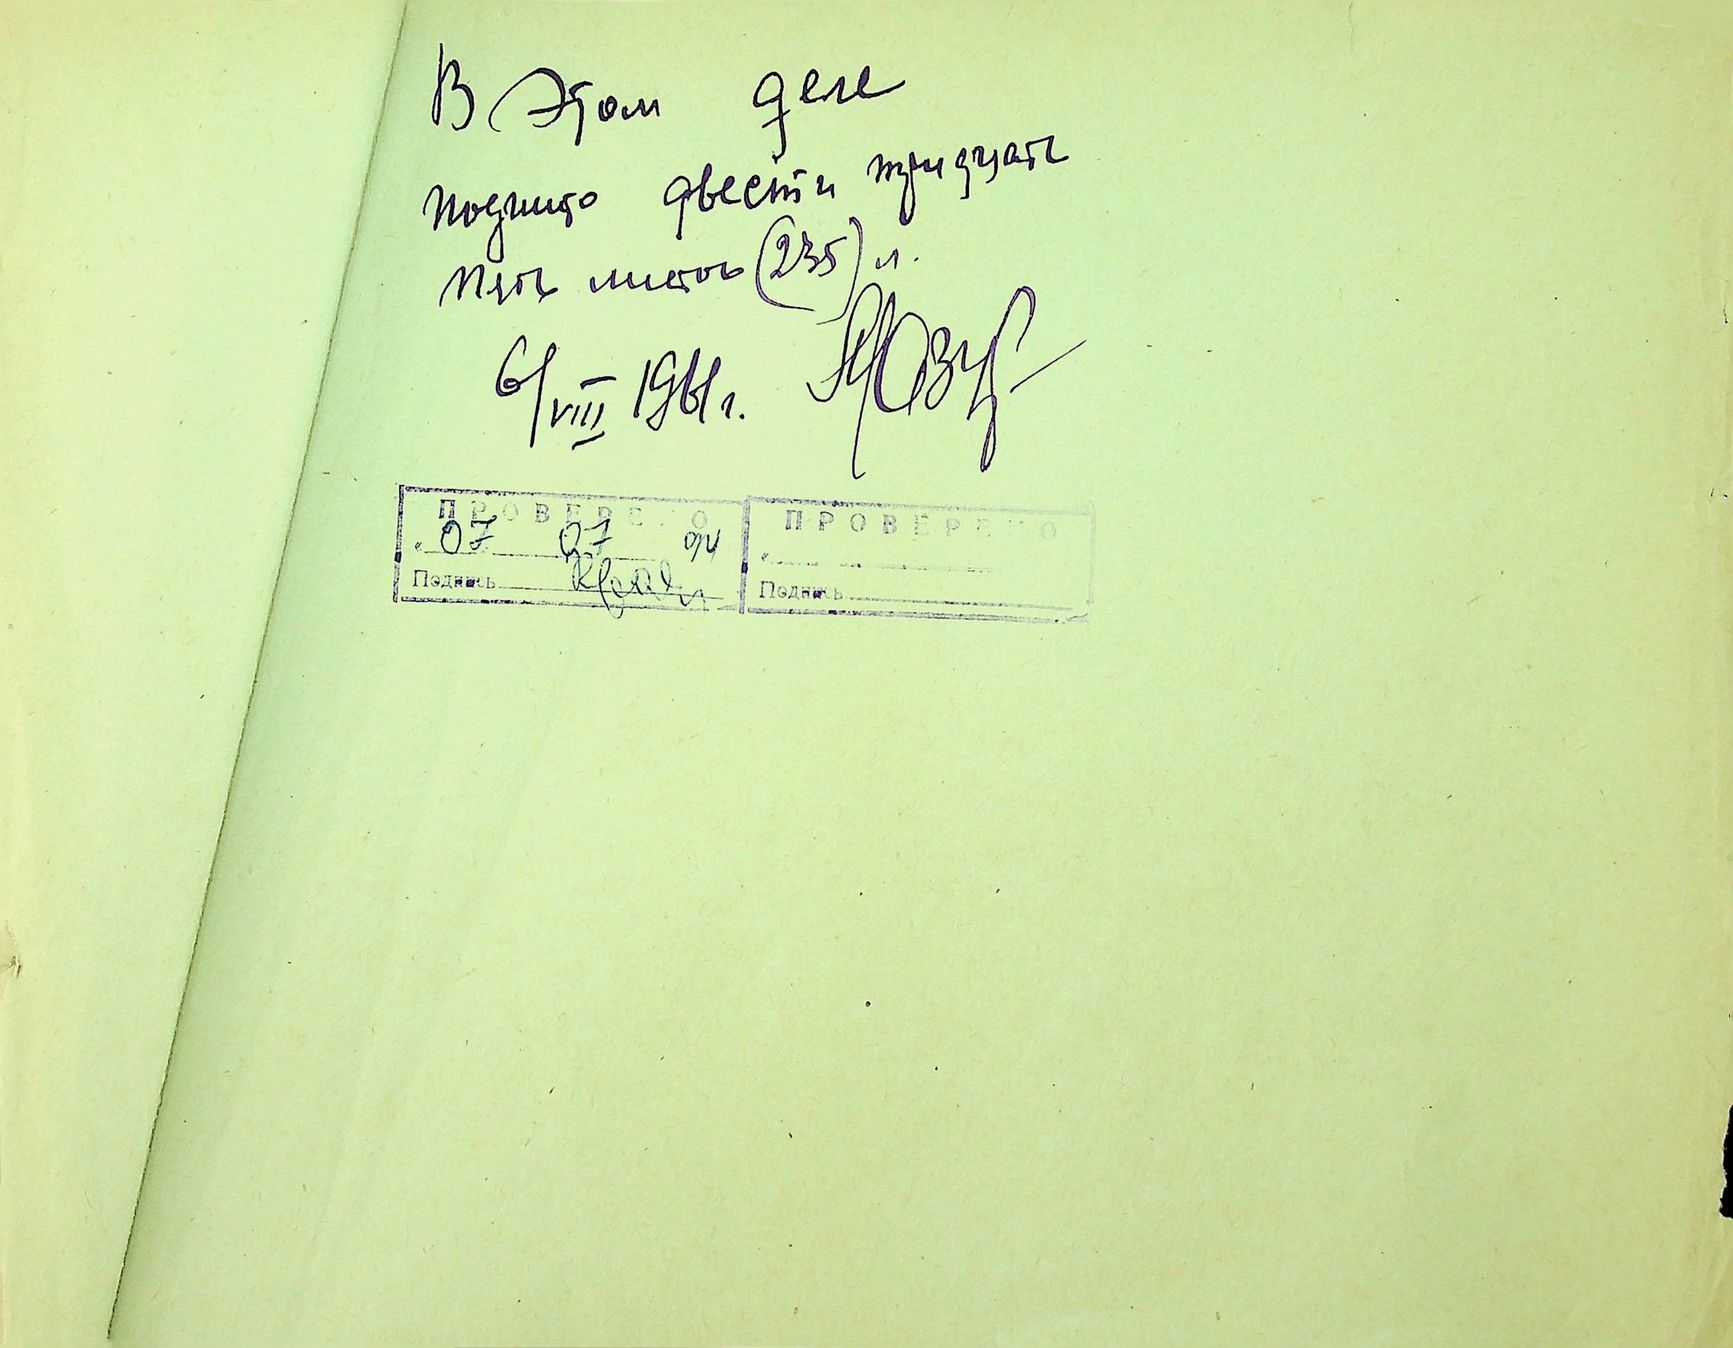 В этом деле
подшито двести тридцать
пять листов (235) л.
6/VIII 1961 г.
ПРОВЕРЕНО
"07 07
Подпись
ПРОВЕРЕНО
"
Подпись